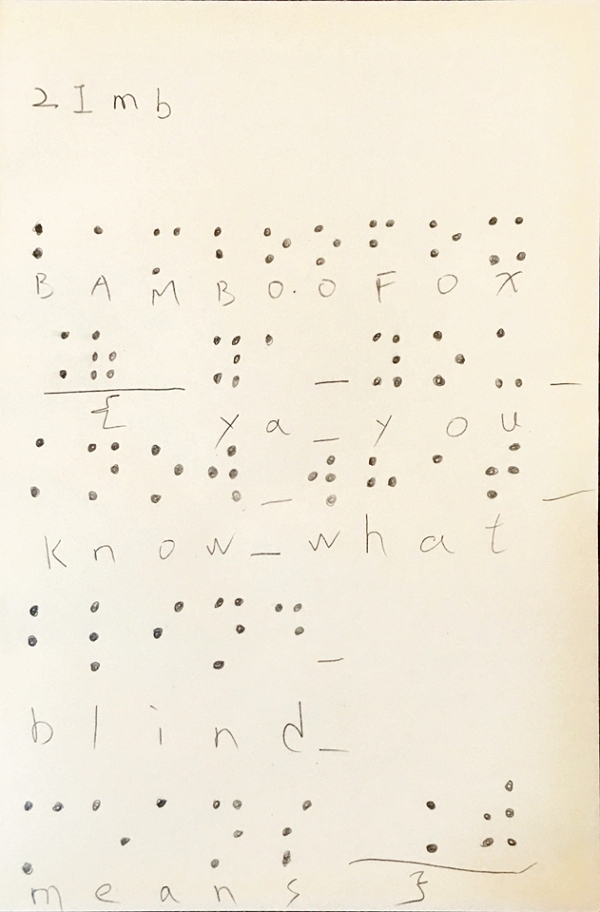 2 I m b
B A M B O . O F O X
{ y a _ y o u _
k n o w _ w h a t _
b l i n d _
m e a n s }